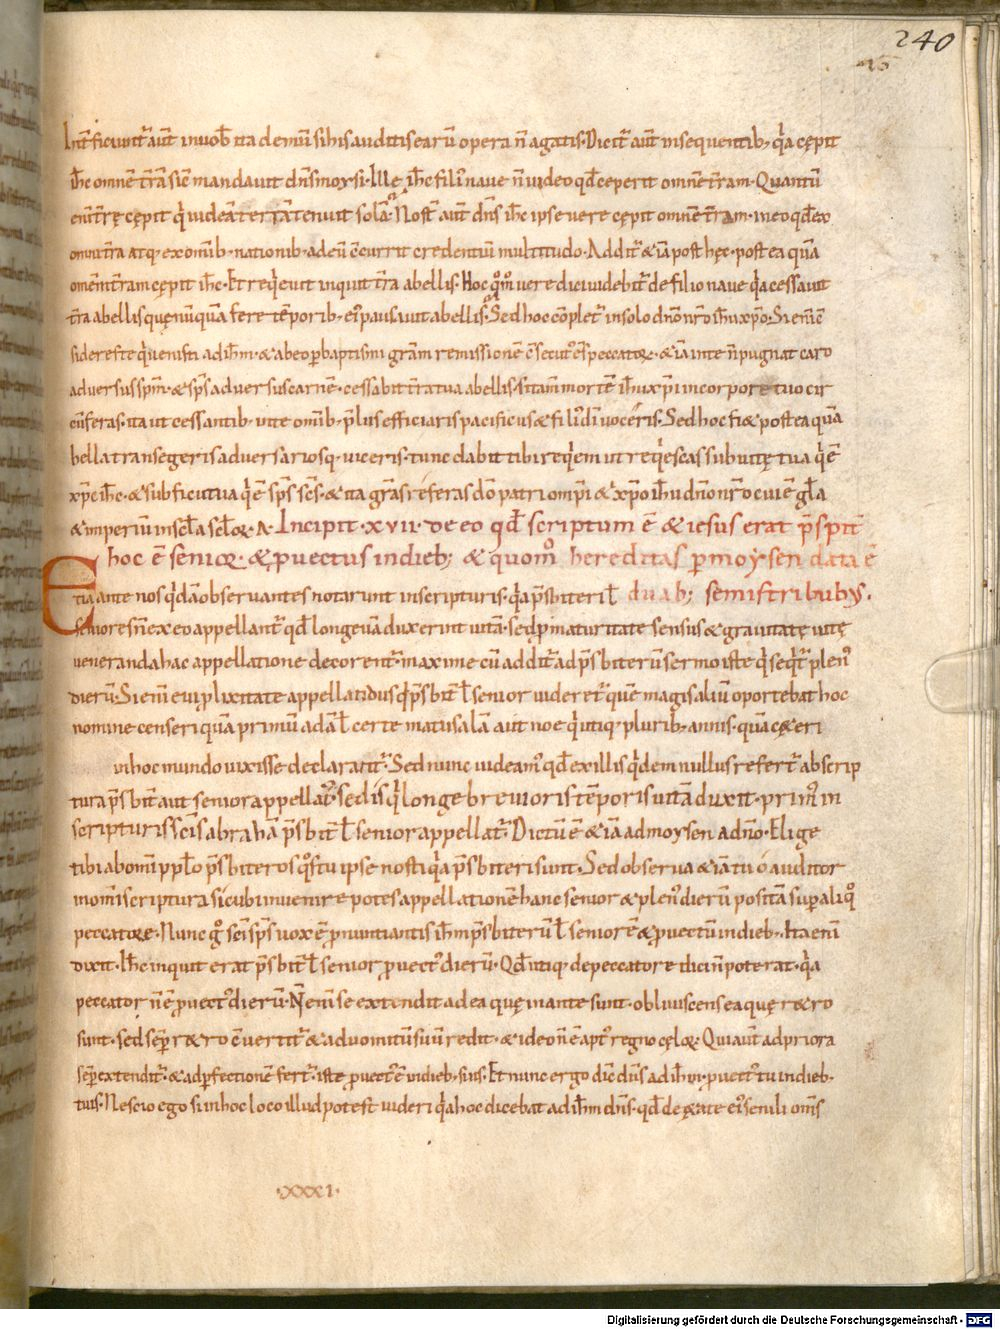 240
Int̄ficiunt̄ aūt in uob̄ ita demū si his auditis earū opera n̄ agatis. Dicit̄ aūt in sequentib; qa cępit
ih̄c omnem t̄ram sic̄ mandauit dn̄s moysi. Ille ih̄c filiꝰ naue n̄ uideo qd̄ ceperit omnem t̄ram. Quantū
enī t̄rę cępit q̇ iudeā terrā tenuit solā. Nost̄ aūt dn̄s ih̄c ipse uere cępit omnem t̄ram. in eo qd̄ ex
omni t̄ra atq; ex omīb. nationib. ad eū c̄currit credentiū multitudo. Addit̄ & iā post hęc. postea quā
omem t̄ram cępit ih̄c. Et req̇euit inquit t̄ra a bellis. Hoc qͦmͦ uere dici uidebit̄ de filio naue q̇a cessauit
t̄ra a bellis quę nūquā fere tēporib; eiꝰ pausauit a bellis. Sed hoc cōplet̄ in solo dn̄o nr̄o ih̄u xp̄o. Si enī c̄
sideres te q̇ uenisti ad ih̄m. & ab eo ꝑ baptismi grām remissionē c̄secutꝰ es peccatoꝝ. & iā in te n̄ pugnat caro
aduersus sp̄m. & sp̄s aduersus carnē. cessabit t̄ra tua a bellis. si tam̄ mortē ih̄u xp̄i in corpore tuo cir
cū feras. ita ut cessantib. uite omīb. p̄lus efficiaris pacificus & filiꝰ dī uoceris. Sed hoc fi& postea quā
bella transegeris aduersariosq. uiceris. tunc dabit tibi req̇em ut req̇escas sub uitę tua q̇ ē
xp̄c ih̄c. & sub ficu tua q̇ ē sp̄s sc̄s. & ita grās referas dō patri omp̄i & xp̄o ih̄u dn̄o nr̄o cui ē gl̄a
& imperiū in scl̄a scl̄oꝝ. A. Incipit. xvii. de eo qd̄ scriptum ē & iesus erat p̄sb̄it̄
hoc ē senioꝝ. & ꝓuectus in dieb; & quomͦ hereditas ꝑ moysen data ē
Etiā ante nos q̇dā obseruantes notarunt in scripturis. q̇a p̄sbiteri ł duab; semis tribubus.
seniores n̄ ex eo appellant̄ qd̄ longeuā duxerint uitā. sed p̄ maturitate sensus & grauitatę uitę
ueneranda hac appellatione decorent̄. maxime cū addit̄ ad p̄sbiterū sermo iste q̇ seq̇t̄ plenꝰ
dierū. Si enī eui ꝓlixitate appellatꝰ idus p̄sbit̄ ł senior uideret̄. quē magis aliū oportebat hoc
nomine censeri quā primū adā ł certe matusalā aut noe q̇ utiq. plurib; annis. quā cęteri
in hoc mundo uixisse declarant̄. Sed nunc uideamꝰ qd̄ ex illis q̇dem nullus refert̄ ab scrip
tura p̄sbit̄ aut senior appellatꝰ. sed is q̇ longe breuioris tēporis uitā duxit. primꝰ in
scripturis sc̄is abrahā p̄sbit̄ ł senior appellat̄. Dictū ē & iā ad moysen a dn̄o. Elige
tibi ab omī pp̄lo p̄sbiteros qͦs tu ipse nosti q̇a p̄sbiteri sunt. Sed obserua & iā tu ó auditor
in omī scriptura sicubi inuenire potes appellationē hanc senior & plenꝰ dierū positā sup aliqͦ
peccatore. Nunc gͦ sc̄i sp̄s uox ē ꝓnuntiantis ih̄m p̄sbiterū ł seniorē & ꝓuectū in dieb;. Ita enī
dixit. Ih̄c inquit erat p̄sbit̄ ł senior ꝓuectꝰ dierū. Qd̄ utiq. de peccatore dici n̄ poterat. q̇a
peccator n̄ ē ꝓuectꝰ dierū. N̄ enī se extendit ad ea quę in ante sunt. obliuiscens ea quę r&ro
sunt. sed semꝑ r&ro c̄uertit̄ & ad uomitū suū redit. & ideo n̄ ē aptꝰ regno cęloꝝ. Qui aūt ad priora
semꝑ extendit̄. & ad ꝑfectionem fert̄. iste ꝓuectꝰ ē in dieb. suis. Et nunc ergo dic̄ dn̄s ad ih̄m. ꝓuectꝰ tu in dieb.
tuis. Nescio ego si in hoc loco illud potest uideri q̇a hoc dicebat ad ih̄m dn̄s. qd̄ de ętate eiꝰ senili om̄s
.xxxi.
Digitalisierung gefördert durch die Deutsche Forschungsgemeinschaft - DFG